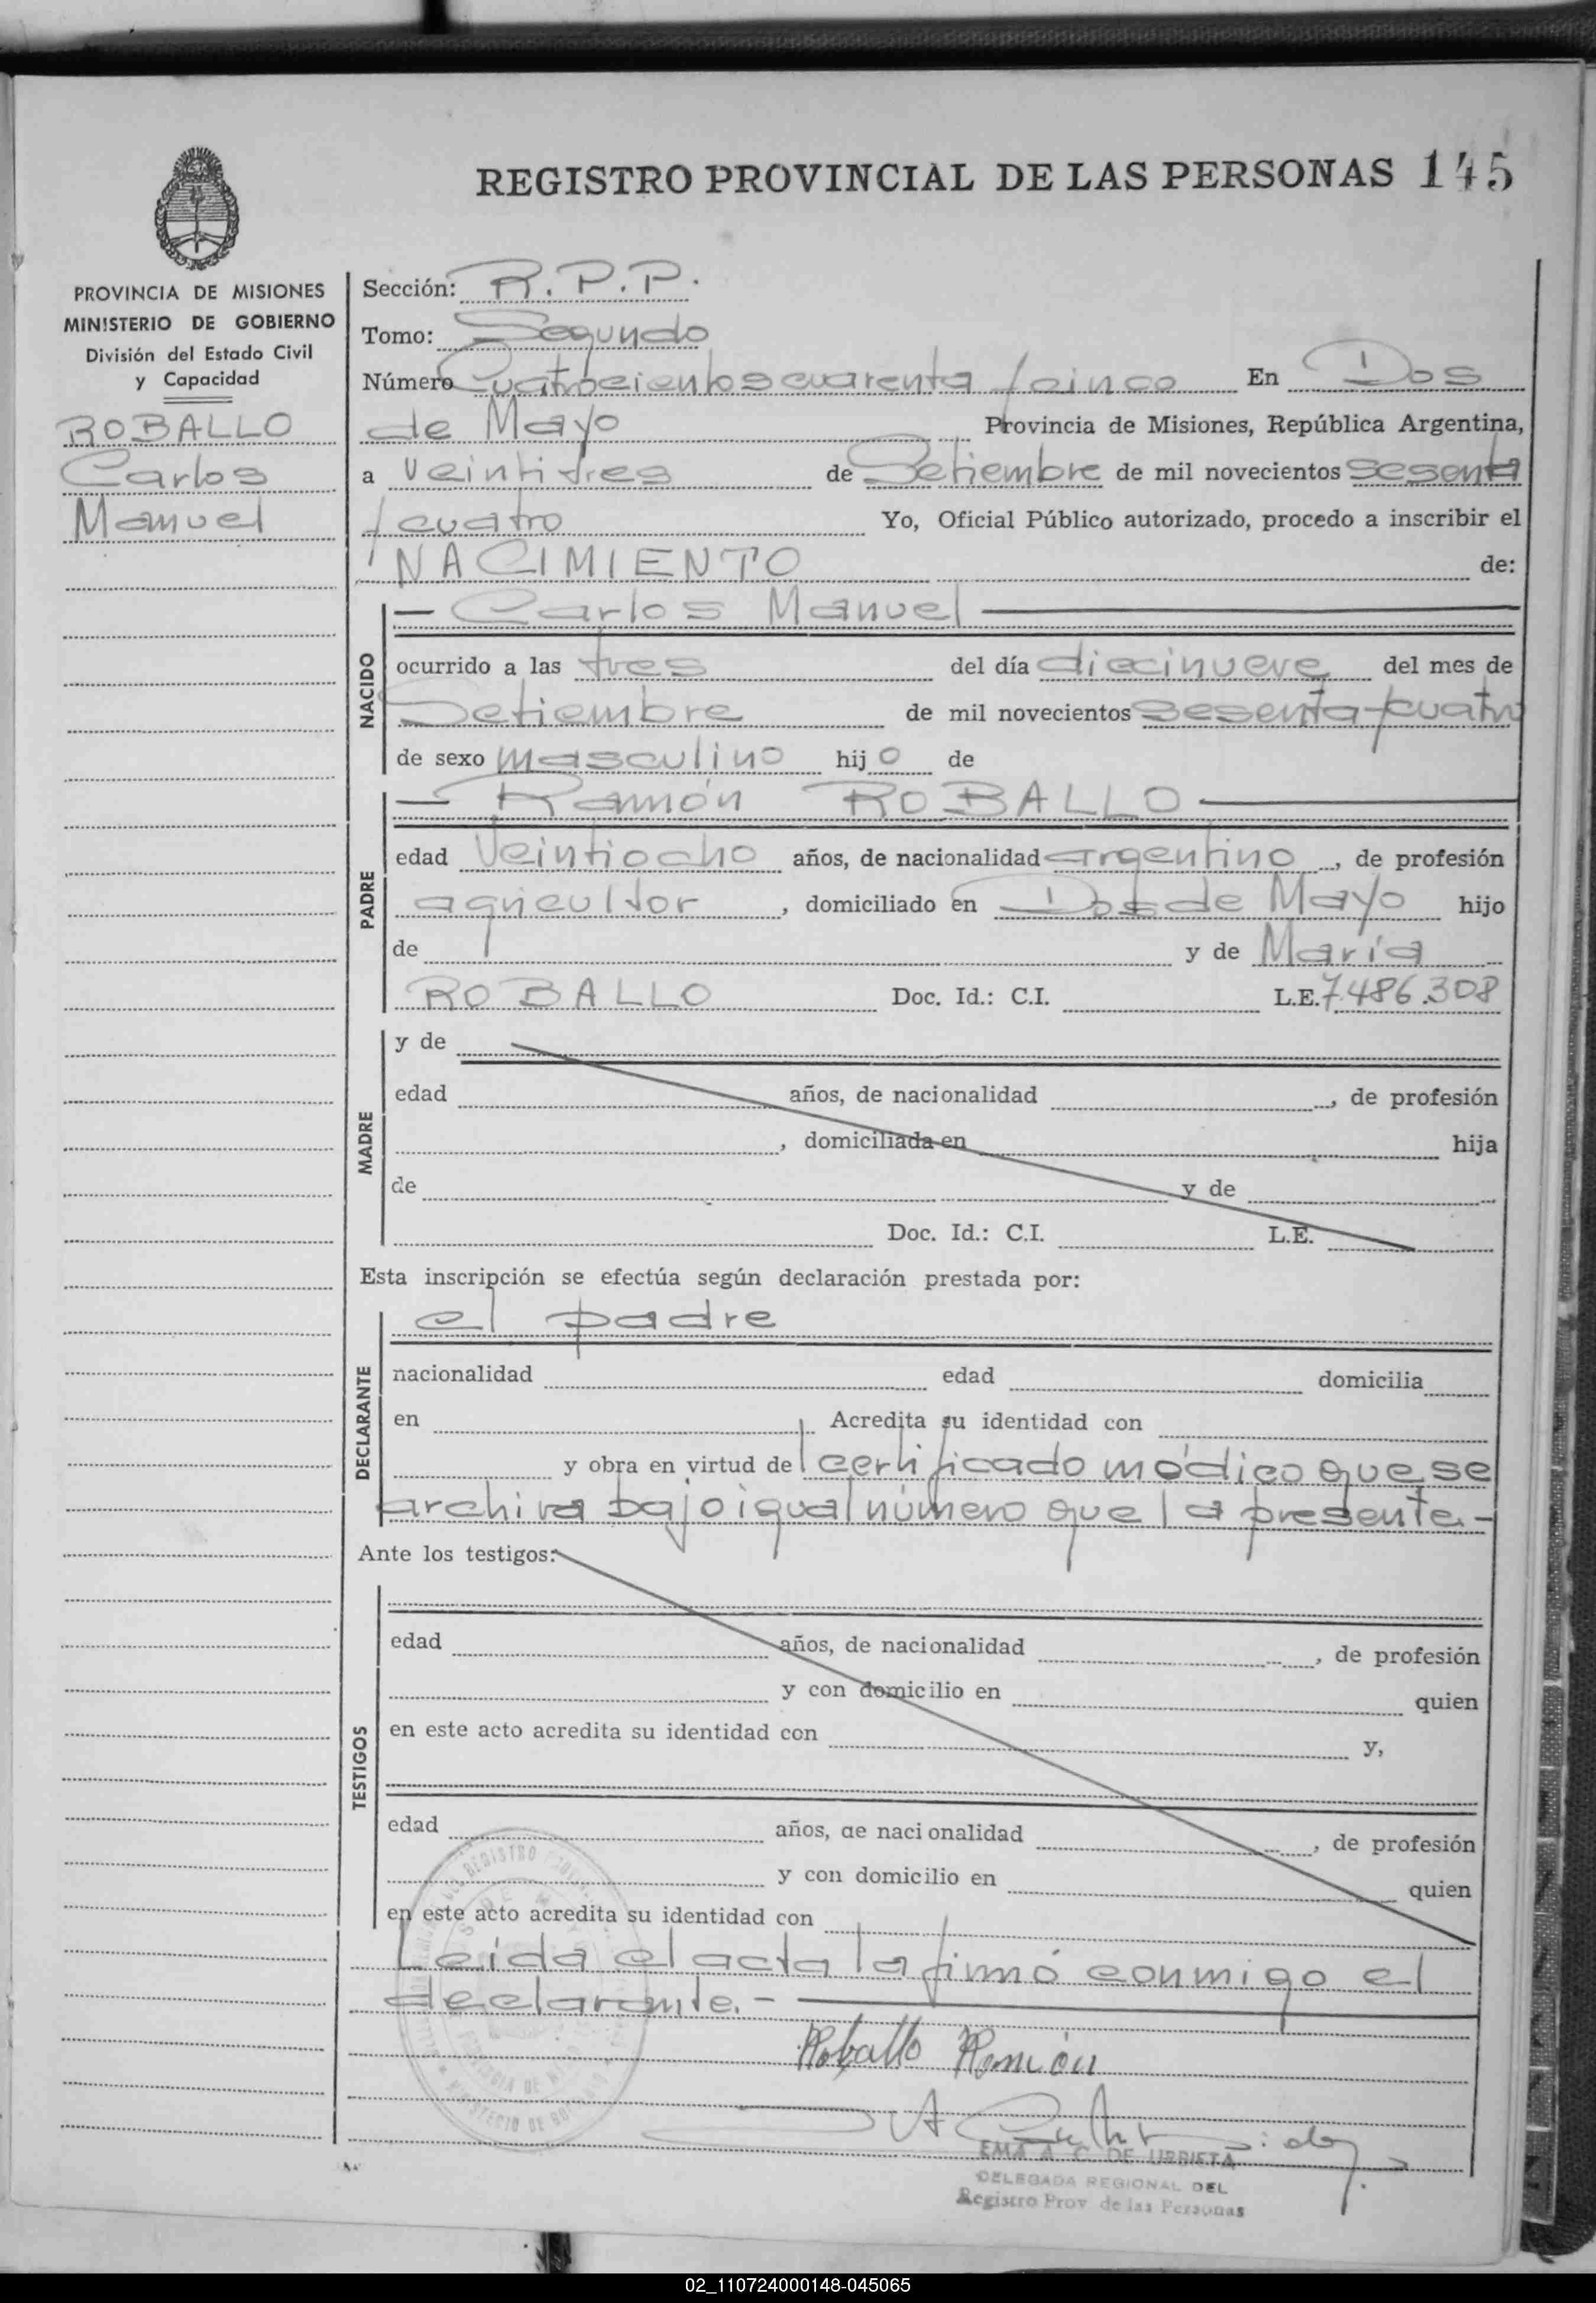 REGISTRO PROVINCIAL DE LAS PERSONAS 145
PROVINCIA DE MISIONES
MINISTERIO DE GOBIERNO
División del Estado Civil
y Capacidad
ROBALLO
Carlos
Manuel
Sección: R.P.P.
Tomo: Segundo
Número Cuatrocientos cuarenta y cinco En Dos
de Mayo Provincia de Misiones, República Argentina,
a veintitres de Setiembre de mil novecientos sesenta
y cuatro Yo, Oficial Público autorizado, procedo a inscribir el
NACIMIENTO de:
NACIDO
— Carlos Manuel —
ocurrido a las tres del día diecinueve del mes de
Setiembre de mil novecientos sesenta y cuatro
de sexo masculino hijo de
PADRE
— Ramón ROBALLO —
edad Veintiocho años, de nacionalidad argentino, de profesión
agricultor, domiciliado en Dos de Mayo hijo
de y de María
ROBALLO Doc. Id.: C.I. L.E. 7.486.308
MADRE
y de
edad años, de nacionalidad , de profesión
, domiciliada en hija
de y de
Doc. Id.: C.I. L.E.
Esta inscripción se efectúa según declaración prestada por:
DECLARANTE
el padre
nacionalidad edad domicilia
en Acredita su identidad con
y obra en virtud del certificado médico que se
archiva bajo igual número que la presente.-
Ante los testigos:
TESTIGOS
edad años, de nacionalidad , de profesión
y con domicilio en quien
en este acto acredita su identidad con y,
edad años, de nacionalidad , de profesión
y con domicilio en quien
en este acto acredita su identidad con
Leida el acta la firmó conmigo el
declarante.-
Roballo Ramón
EMA A. C. DE URRIETA
DELEGADA REGIONAL DEL
Registro Prov de las Personas
02_110724000148-045065